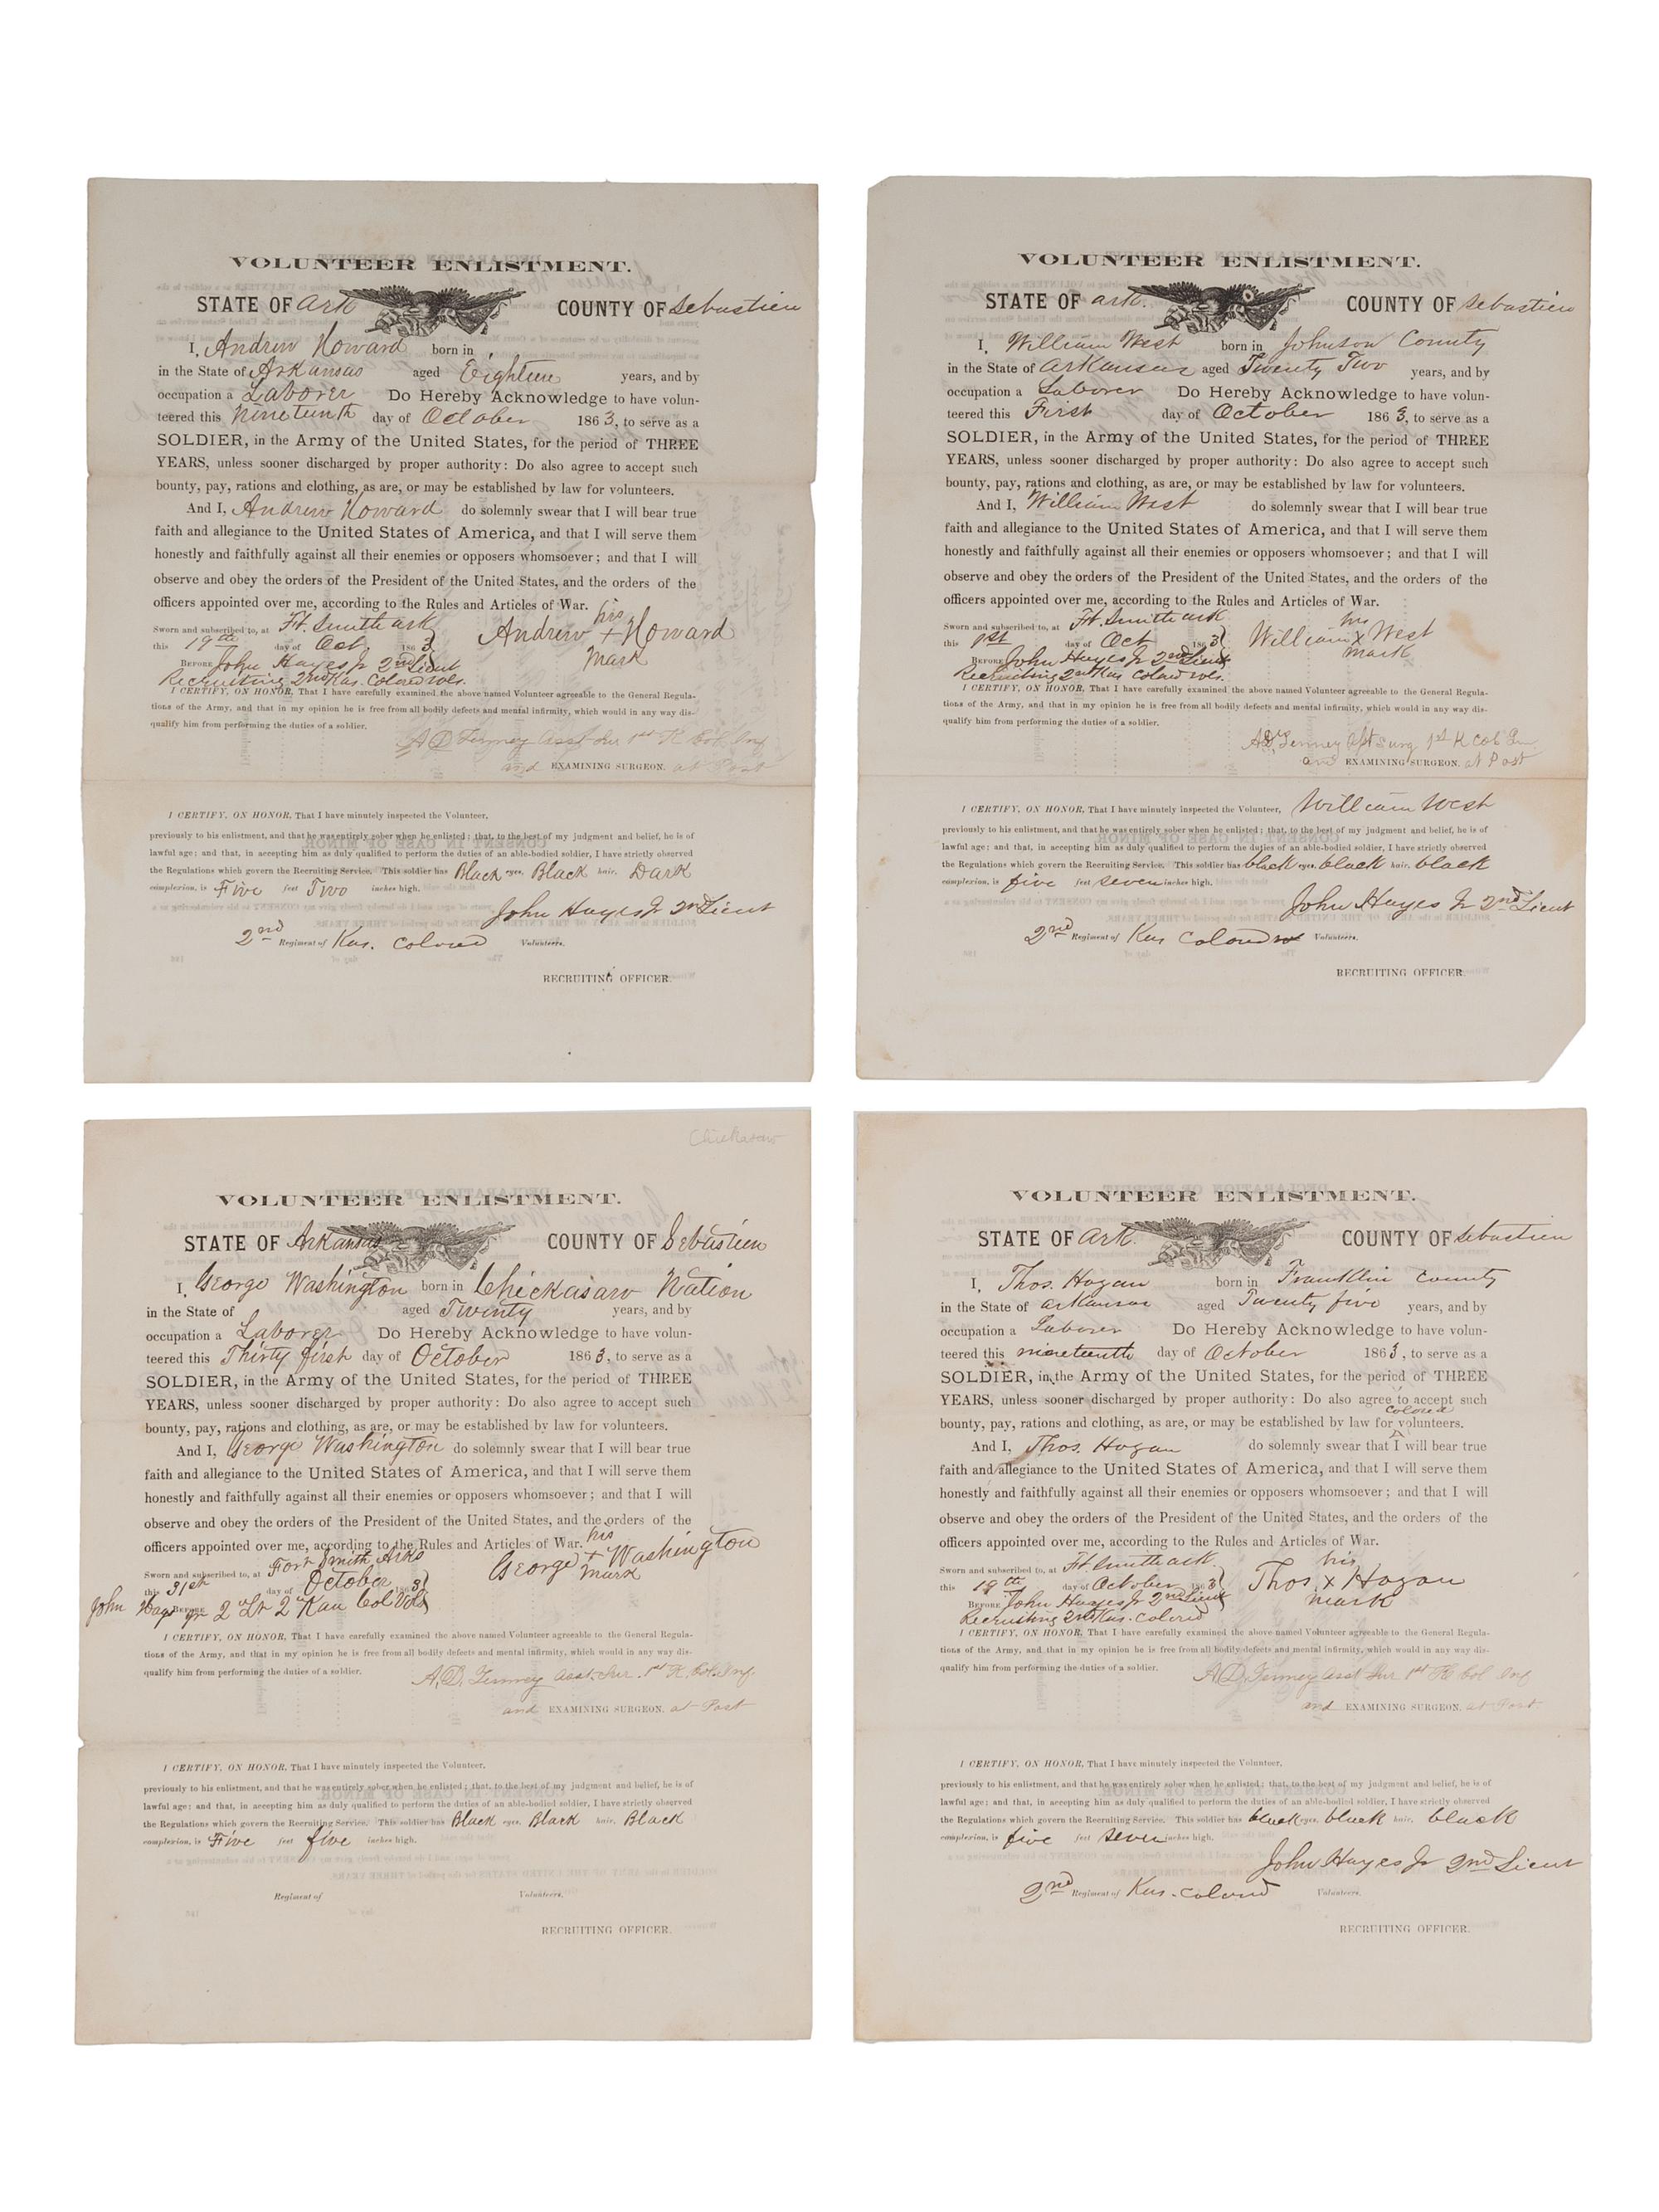 VOLUNTEER ENLISTMENT.
STATE OF Ark COUNTY OF Sebastien
I, Andrew Howard born in
in the State of Arkansas aged Eighteen years, and by
occupation a Laborer Do Hereby Acknowledge to have volun-
teered this Nineteenth day of October 1863, to serve as a
SOLDIER, in the Army of the United States, for the period of THREE
YEARS, unless sooner discharged by proper authority: Do also agree to accept such
bounty, pay, rations and clothing, as are, or may be established by law for volunteers.
And I, Andrew Howard do solemnly swear that I will bear true
faith and allegiance to the United States of America, and that I will serve them
honestly and faithfully against all their enemies or opposers whomsoever; and that I will
observe and obey the orders of the President of the United States, and the orders of the
officers appointed over me, according to the Rules and Articles of War.
Sworn and subscribed to, at Ft. Smith Ark
this 19th day of Oct. 1863
his
Andrew + Howard
Mark
BEFORE John Hayes Jr 2nd Lieut
Recruiting 2nd Kas. Colored vols.
I CERTIFY, ON HONOR, That I have carefully examined the above named Volunteer agreeable to the General Regula-
tions of the Army, and that in my opinion he is free from all bodily defects and mental infirmity, which would in any way dis-
qualify him from performing the duties of a soldier.
A D Tenney Asst Sur 1st K Col Inf
and EXAMINING SURGEON. at Post
I CERTIFY, ON HONOR, That I have minutely inspected the Volunteer,
previously to his enlistment, and that he was entirely sober when he enlisted; that, to the best of my judgment and belief, he is of
lawful age; and that, in accepting him as duly qualified to perform the duties of an able-bodied soldier, I have strictly observed
the Regulations which govern the Recruiting Service. This soldier has Black eyes, Black hair, Dark
complexion, is Five feet Two inches high.
John Hayes Jr 2nd Lieut
2nd Regiment of Kas. Colored Volunteers.
RECRUITING OFFICER.
VOLUNTEER ENLISTMENT.
STATE OF Ark. COUNTY OF Sebastien
I, William West born in Johnson County
in the State of Arkansas aged Twenty Two years, and by
occupation a Laborer Do Hereby Acknowledge to have volun-
teered this First day of October 1863, to serve as a
SOLDIER, in the Army of the United States, for the period of THREE
YEARS, unless sooner discharged by proper authority: Do also agree to accept such
bounty, pay, rations and clothing, as are, or may be established by law for volunteers.
And I, William West do solemnly swear that I will bear true
faith and allegiance to the United States of America, and that I will serve them
honestly and faithfully against all their enemies or opposers whomsoever; and that I will
observe and obey the orders of the President of the United States, and the orders of the
officers appointed over me, according to the Rules and Articles of War.
Sworn and subscribed to, at Ft. Smith Ark
this 1st day of Oct 1863
his
William x West
mark
BEFORE John Hayes Jr 2nd Lieut
Recruiting 2nd Kas Colored vols.
I CERTIFY, ON HONOR, That I have carefully examined the above named Volunteer agreeable to the General Regula-
tions of the Army, and that in my opinion he is free from all bodily defects and mental infirmity, which would in any way dis-
qualify him from performing the duties of a soldier.
A D Tenney Ast Surg 1st K Col In
and EXAMINING SURGEON. at Post
I CERTIFY, ON HONOR, That I have minutely inspected the Volunteer, William West
previously to his enlistment, and that he was entirely sober when he enlisted; that, to the best of my judgment and belief, he is of
lawful age; and that, in accepting him as duly qualified to perform the duties of an able-bodied soldier, I have strictly observed
the Regulations which govern the Recruiting Service. This soldier has black eyes, black hair, black
complexion, is five feet seven inches high.
John Hayes Jr 2nd Lieut
2nd Regiment of Kas Colored Volunteers.
RECRUITING OFFICER.
Chickasaw
VOLUNTEER ENLISTMENT.
STATE OF Arkansas COUNTY OF Sebastien
I, George Washington born in Chickasaw Nation
in the State of aged Twenty years, and by
occupation a Laborer Do Hereby Acknowledge to have volun-
teered this Thirty first day of October 1863, to serve as a
SOLDIER, in the Army of the United States, for the period of THREE
YEARS, unless sooner discharged by proper authority: Do also agree to accept such
bounty, pay, rations and clothing, as are, or may be established by law for volunteers.
And I, George Washington do solemnly swear that I will bear true
faith and allegiance to the United States of America, and that I will serve them
honestly and faithfully against all their enemies or opposers whomsoever; and that I will
observe and obey the orders of the President of the United States, and the orders of the
officers appointed over me, according to the Rules and Articles of War.
Sworn and subscribed to, at Fort Smith Arks
this 31st day of October 1863
his
George + Washington
mark
BEFORE John Hays jr 2nd Lt 2nd Kan Col Vols
I CERTIFY, ON HONOR, That I have carefully examined the above named Volunteer agreeable to the General Regula-
tions of the Army, and that in my opinion he is free from all bodily defects and mental infirmity, which would in any way dis-
qualify him from performing the duties of a soldier.
A. D. Tenney Asst. Sur. 1st K. Col. Inf.
and EXAMINING SURGEON. at Post
I CERTIFY, ON HONOR, That I have minutely inspected the Volunteer,
previously to his enlistment, and that he was entirely sober when he enlisted; that, to the best of my judgment and belief, he is of
lawful age; and that, in accepting him as duly qualified to perform the duties of an able-bodied soldier, I have strictly observed
the Regulations which govern the Recruiting Service. This soldier has Black eyes, Black hair, Black
complexion, is Five feet five inches high.
Regiment of Volunteers.
RECRUITING OFFICER.
VOLUNTEER ENLISTMENT.
STATE OF Ark. COUNTY OF Sebastien
I, Thos. Hogan born in Franklin County
in the State of Arkansas aged Twenty five years, and by
occupation a Laborer Do Hereby Acknowledge to have volun-
teered this nineteenth day of October 1863, to serve as a
SOLDIER, in the Army of the United States, for the period of THREE
YEARS, unless sooner discharged by proper authority: Do also agree to accept such
colored
bounty, pay, rations and clothing, as are, or may be established by law for volunteers.
And I, Thos. Hogan do solemnly swear that I will bear true
faith and allegiance to the United States of America, and that I will serve them
honestly and faithfully against all their enemies or opposers whomsoever; and that I will
observe and obey the orders of the President of the United States, and the orders of the
officers appointed over me, according to the Rules and Articles of War.
Sworn and subscribed to, at Ft. Smith Ark.
this 19th day of October 1863
his
Thos. x Hogan
mark
BEFORE John Hayes Jr 2nd Lieut
Recruiting 2nd Kas. Colored
I CERTIFY, ON HONOR, That I have carefully examined the above named Volunteer agreeable to the General Regula-
tions of the Army, and that in my opinion he is free from all bodily defects and mental infirmity, which would in any way dis-
qualify him from performing the duties of a soldier.
A D. Tenney Asst Sur 1st K Col Inf
and EXAMINING SURGEON. at Post
I CERTIFY, ON HONOR, That I have minutely inspected the Volunteer,
previously to his enlistment, and that he was entirely sober when he enlisted; that, to the best of my judgment and belief, he is of
lawful age; and that, in accepting him as duly qualified to perform the duties of an able-bodied soldier, I have strictly observed
the Regulations which govern the Recruiting Service. This soldier has black eyes, black hair, black
complexion, is five feet seven inches high.
John Hayes Jr 2nd Lieut
2nd Regiment of Kas. Colored Volunteers.
RECRUITING OFFICER.